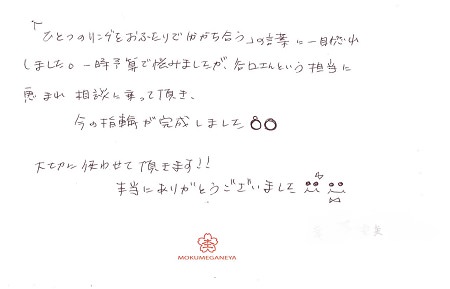 「ひとつのリングをおふたりでわかち合う」の言葉に一目惚れ
しました。一時予算で悩みましたが、谷口さんという担当に
恵まれ 相談に乗って頂き、
今の指輪が完成しました
大切に使わせて頂きます!!
本当にありがとうございました
美
MOKUMEGANEYA